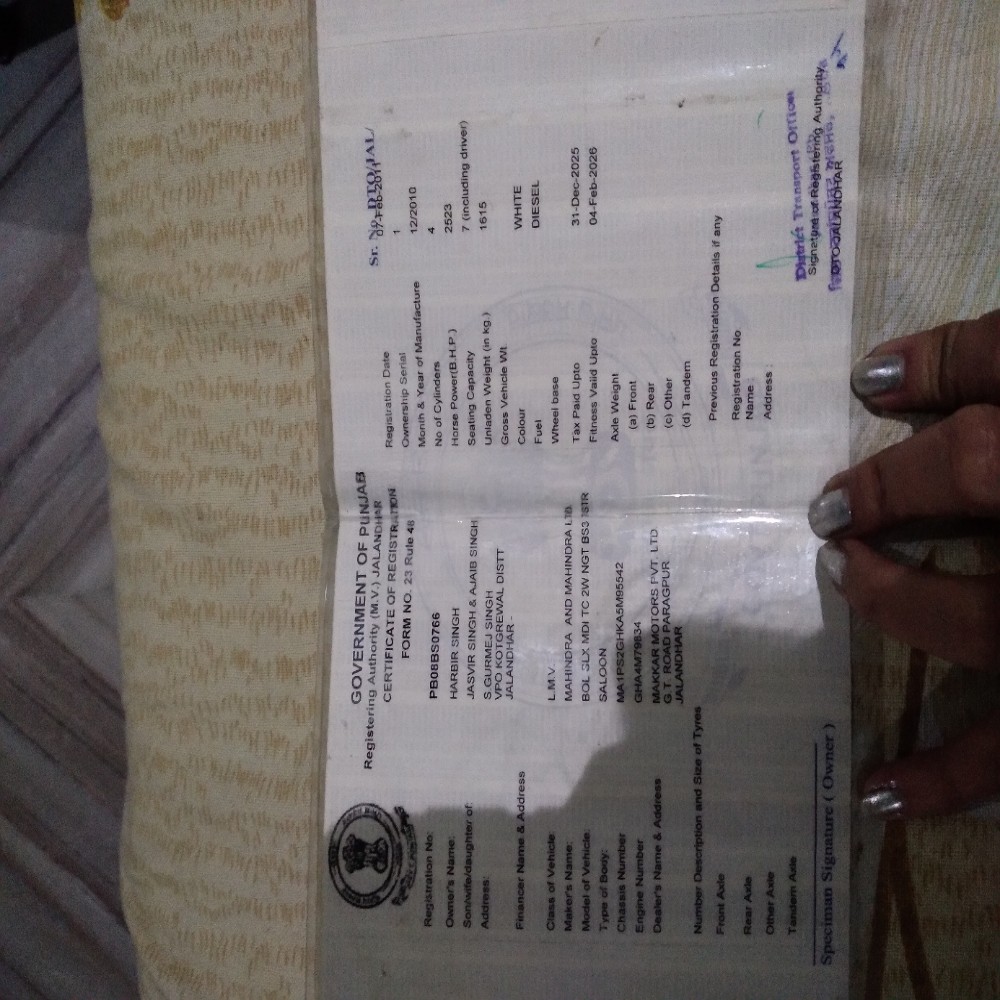 GOVERNMENT OF PUNJAB
Registering Authority (M.V.) JALANDHAR
CERTIFICATE OF REGISTRATION
FORM NO. 23 Rule 48
Registration No: PB08BS0766
Owner's Name: HARBIR SINGH
Son/wife/daughter of: JASVIR SINGH & AJAIB SINGH
Address: S.GURMEJ SINGH
VPO KOTGREWAL DISTT
JALANDHAR -
Financer Name & Address
Class of Vehicle: L.M.V.
Maker's Name: MAHINDRA AND MAHINDRA LTD.
Model of Vehicle: BOL SLX MDI TC 2W NGT BS3 7STR
Type of Body: SALOON
Chassis Number MA1PS2GHKA5M95542
Engine Number GHA4M79834
Dealer's Name & Address MAKKAR MOTORS PVT. LTD
G.T. ROAD PARAGPUR
JALANDHAR
Number Description and Size of Tyres
Front Axle
Rear Axle
Other Axle
Tandem Axle
Specimen Signature ( Owner )
Sr. No. DTO/JAL/
Registration Date 07-Feb-2011
Ownership Serial 1
Month & Year of Manufacture 12/2010
No of Cylinders 4
Horse Power(B.H.P.) 2523
Seating Capacity 7 (including driver)
Unladen Weight (in kg.) 1615
Gross Vehicle Wt.
Colour WHITE
Fuel DIESEL
Wheel base
Tax Paid Upto 31-Dec-2025
Fitness Valid Upto 04-Feb-2026
Axle Weight
(a) Front
(b) Rear
(c) Other
(d) Tandem
Previous Registration Details if any
Registration No
Name :
Address :
District Transport Officer
Signature of Registering Authority
DTO JALANDHAR